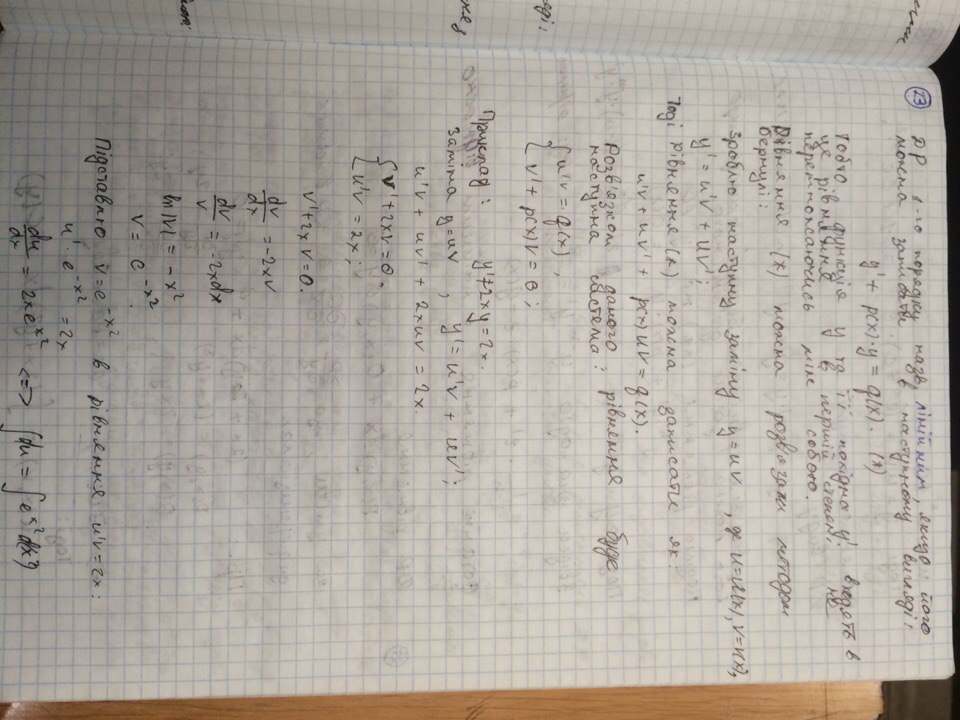 23
ДР 1-го порядку назв. лінійним, якщо його
можна записати в наступному вигляді:
y' + p(x)·y = q(x). (*)
Тобто функція y та її похідна y' входять в
це рівняння в першій степені не
перемножаючись між собою.
Рівняння (*) можна розв'язати методом
Бернулі:
Зроблю наступну заміну y = uv , де u=u(x), v=v(x),
y' = u'v + uv';
Тоді рівняння (*) можна записати як:
u'v + uv' + p(x)uv = q(x).
Розв'язком даного рівняння буде
наступна система:
u'v = q(x) ,
v' + p(x)v = 0 ;
Приклад : y'+2xy = 2x.
Заміна y=uv , y' = u'v + uv';
u'v + uv' + 2xuv = 2x.
v' + 2xv = 0.
u'v = 2x ;
v' + 2x v = 0.
dv/dx = -2xv
dv/v = -2xdx
ln|v| = -x²
v = e^{-x²}.
Підставлю v = e^{-x²} в рівняння u'v = 2x :
u' · e^{-x²} = 2x
du/dx = 2xe^{x²} <=> ∫du = ∫e^{x²}d(x²)